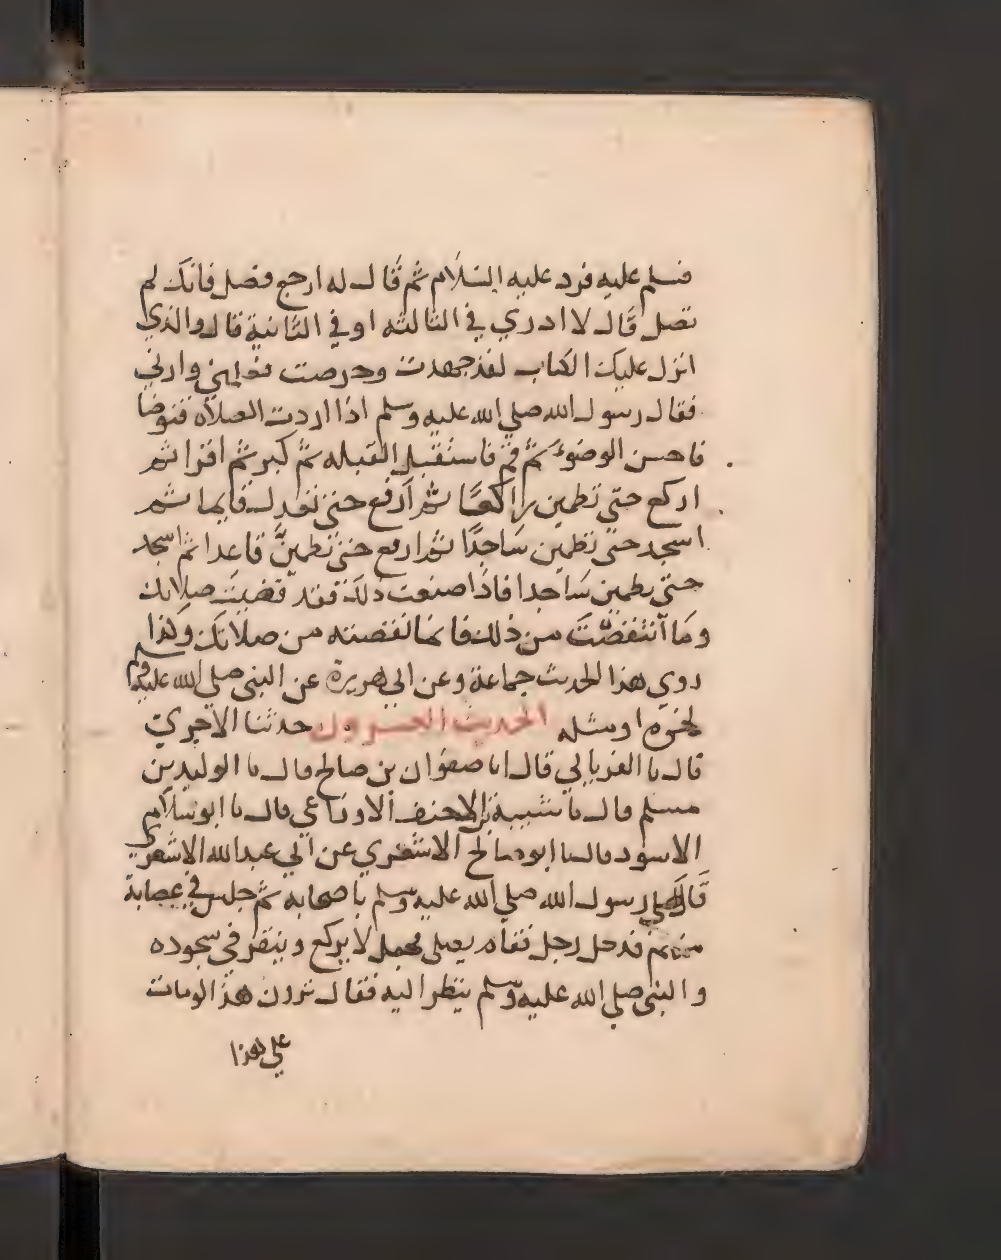 فسلم عليه فرد عليه السلام ثم قال له ارجع فصل فانك لم
تصل قال لا ادري في الثالثه او في الثانية قال والذي
انزل عليك الكتاب لقد جهدت وحرصت فعلمني وارني
فقال رسول الله صلى الله عليه وسلم اذا اردت الصلاه فتوضا
فاحسن الوضوء ثم قم فاستقبل القبله ثم كبر ثم اقرا ثم
اركع حتى تطمين راكعا ثم ارفع حتى تعدل قايما ثم
اسجد حتى تطمين ساجدا ثم ارفع حتى تطمين قاعدا ثم اسجد
حتى تطمين ساجدا فاذا صنعت ذلك فقد قضيت صلاتك
وما انتقصت من ذلك فانما تنقصته من صلاتك وكذا
روي هذا الحديث جماعة وعن ابي هريرة عن النبي صلى الله عليه وسلم
نحوه او مثله الحديث العشرون حدثنا الاجري
قال نا الفريابي قال انا صفوان بن صالح قال نا الوليد بن
مسلم قال نا شيبة بن الاحنف الاوزاعي قال نا ابو سلام
الاسود قال نا ابو صالح الاشعري عن ابي عبد الله الاشعري
قال صلى رسول الله صلى الله عليه وسلم باصحابه ثم جلس في عصابة
منهم فدخل رجل فقام يصلي فجعل لا يركع وينقر في سجوده
والنبي صلى الله عليه وسلم ينظر اليه فقال ترون هذا لو مات
على هذا